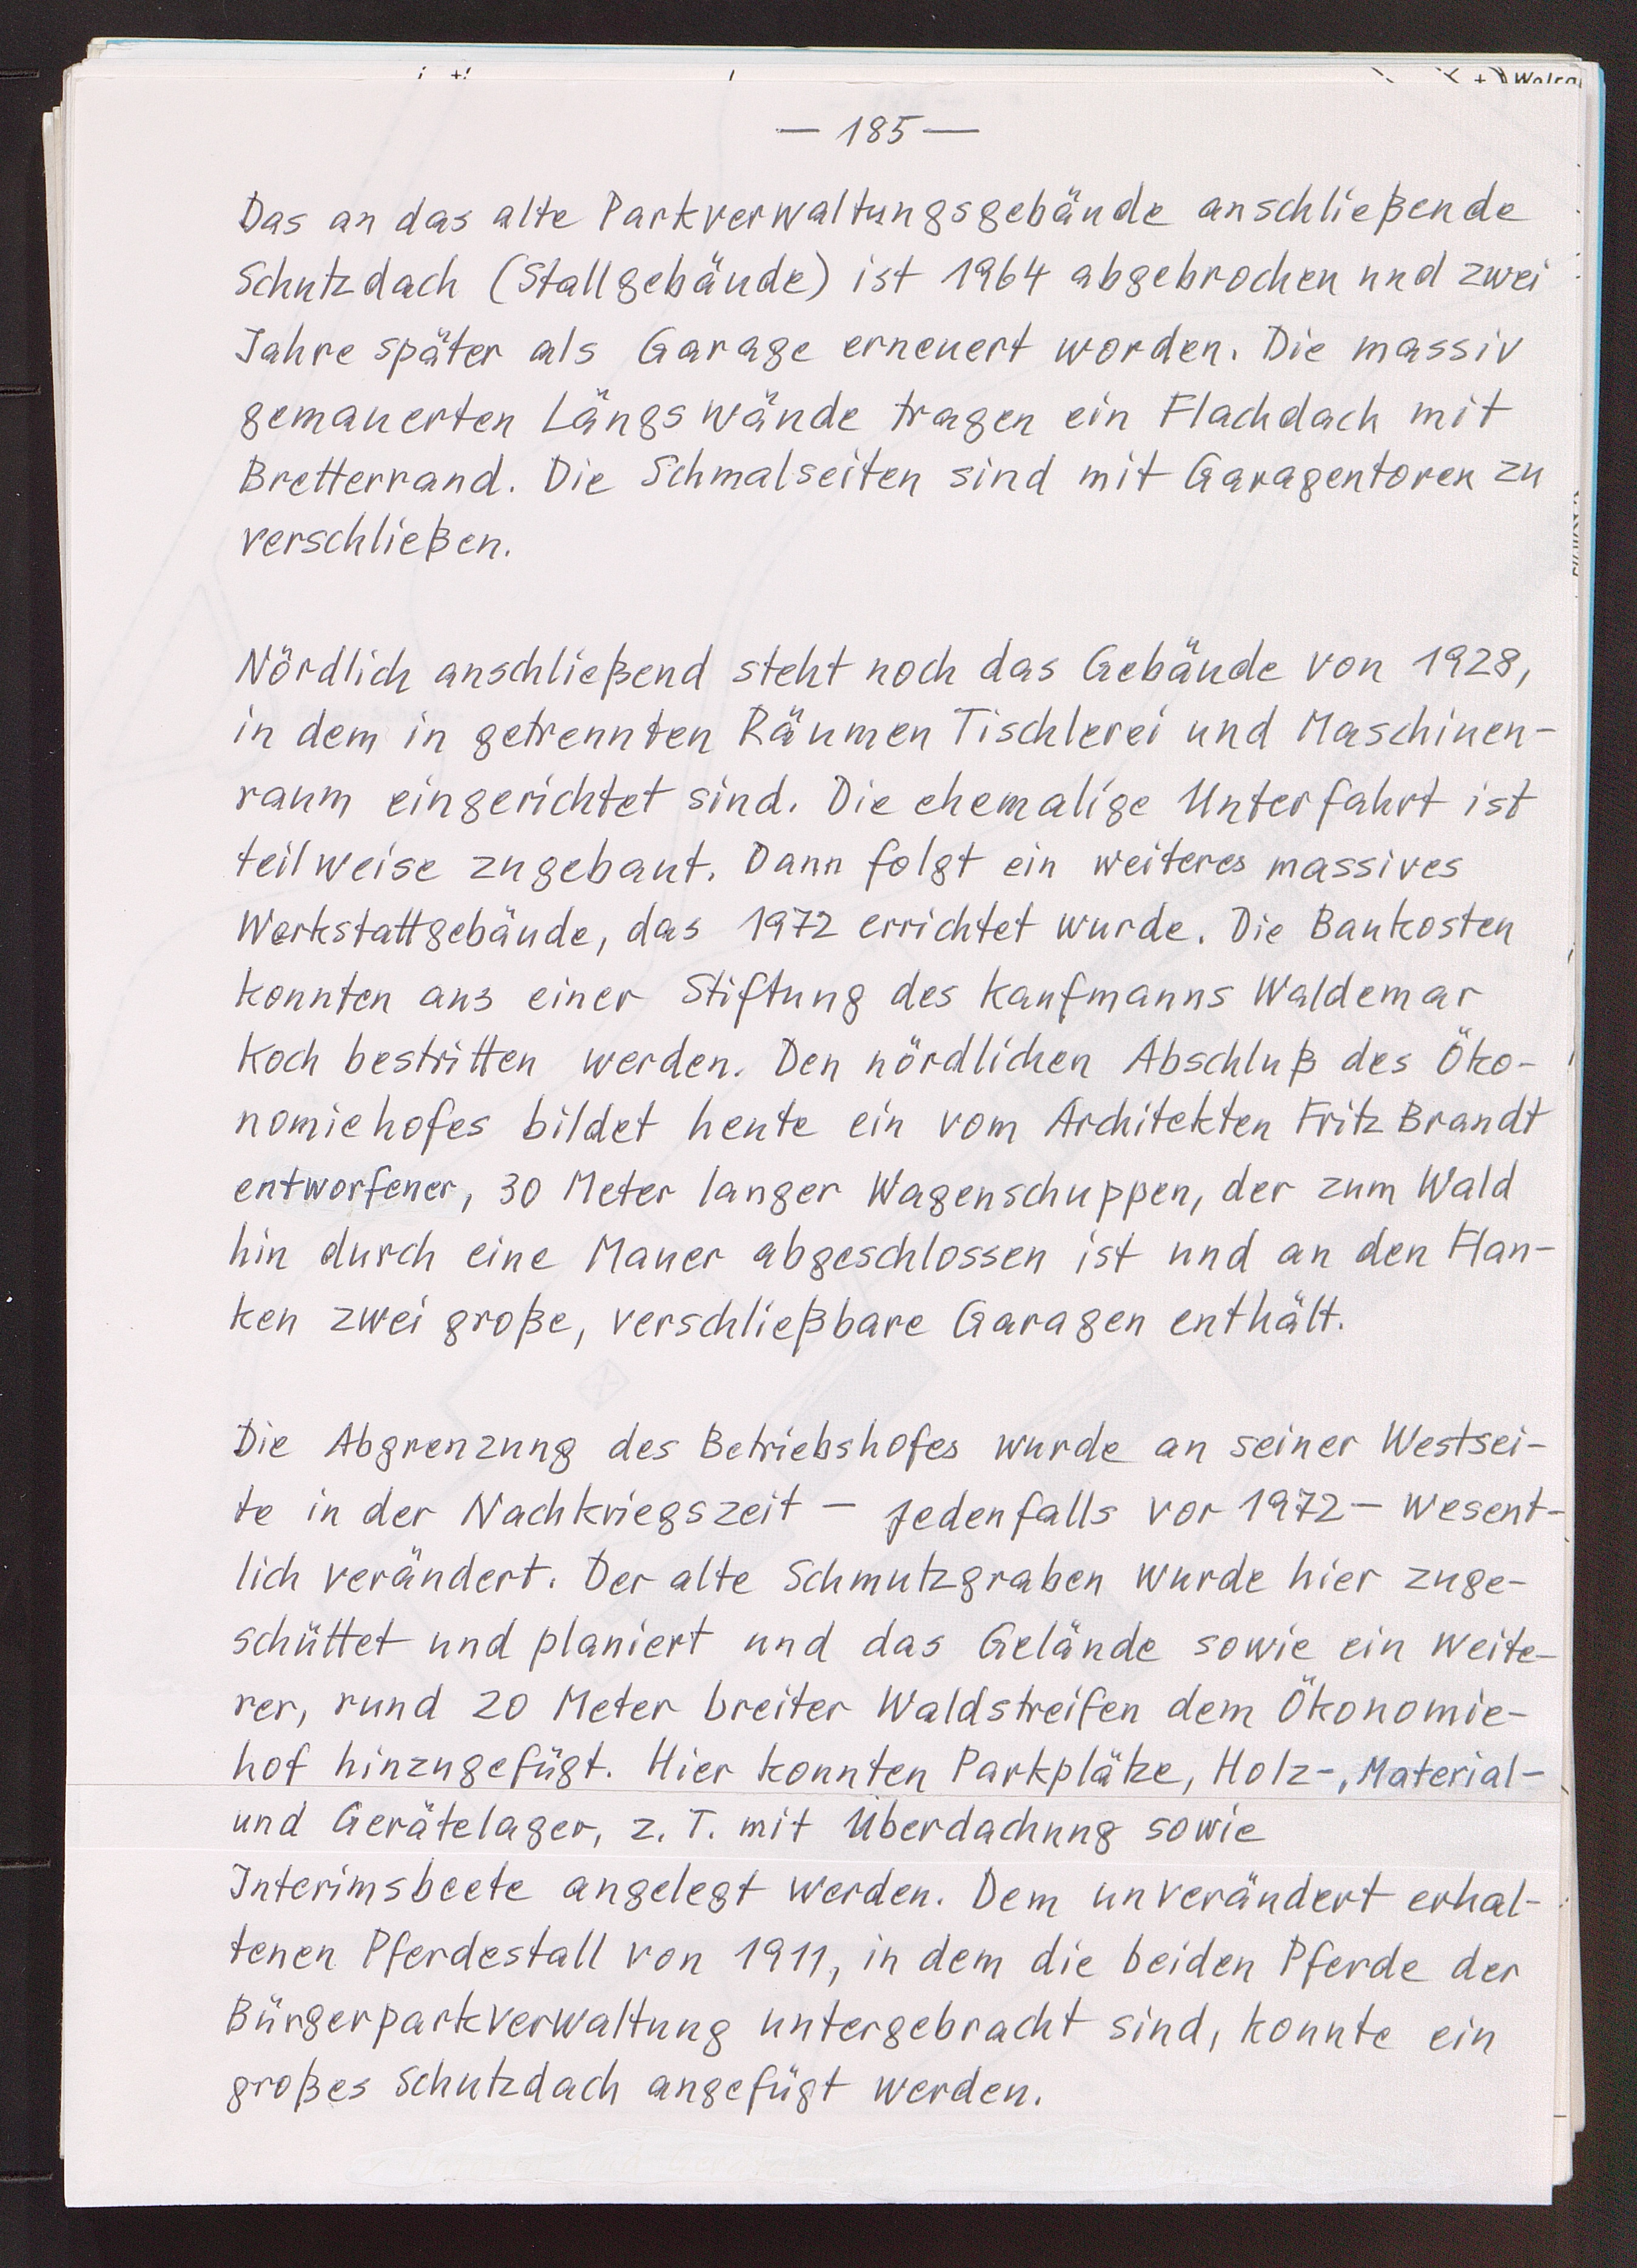 — 185 —
Das an das alte Parkverwaltungsgebäude anschließende
Schutzdach (Stallgebäude) ist 1964 abgebrochen und zwei
Jahre später als Garage erneuert worden. Die massiv
gemauerten Längswände tragen ein Flachdach mit
Bretterrand. Die Schmalseiten sind mit Garagentoren zu
verschließen.
Nördlich anschließend steht noch das Gebäude von 1928,
in dem in getrennten Räumen Tischlerei und Maschinen-
raum eingerichtet sind. Die ehemalige Unterfahrt ist
teilweise zugebaut. Dann folgt ein weiteres massives
Werkstattgebäude, das 1972 errichtet wurde. Die Baukosten
konnten aus einer Stiftung des Kaufmanns Waldemar
Koch bestritten werden. Den nördlichen Abschluß des Öko-
nomiehofes bildet heute ein vom Architekten Fritz Brandt
entworfener, 30 Meter langer Wagenschuppen, der zum Wald
hin durch eine Mauer abgeschlossen ist und an den Flan-
ken zwei große, verschließbare Garagen enthält.
Die Abgrenzung des Betriebshofes wurde an seiner Westsei-
te in der Nachkriegszeit — jedenfalls vor 1972 — wesent-
lich verändert. Der alte Schmutzgraben wurde hier zuge-
schüttet und planiert und das Gelände sowie ein weite-
rer, rund 20 Meter breiter Waldstreifen dem Ökonomie-
hof hinzugefügt. Hier konnten Parkplätze, Holz-, Material-
und Gerätelager, z. T. mit Überdachung sowie
Interimsbeete angelegt werden. Dem unverändert erhal-
tenen Pferdestall von 1911, in dem die beiden Pferde der
Bürgerparkverwaltung untergebracht sind, konnte ein
großes Schutzdach angefügt werden.